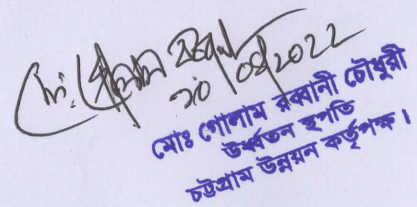 মোঃ গোলাম রব্বানী
২০/০৪/2022
মোঃ গোলাম রব্বানী চৌধুরী
উর্ধ্বতন স্থপতি
চট্টগ্রাম উন্নয়ন কর্তৃপক্ষ।